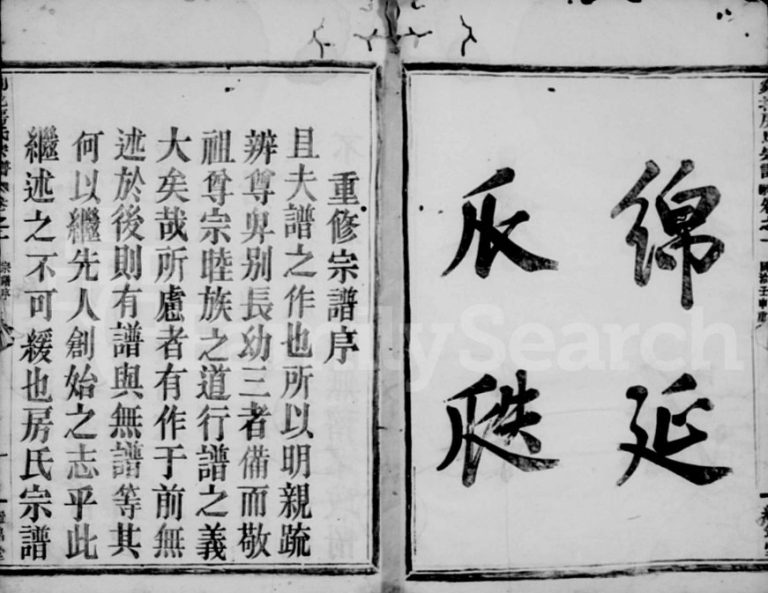 綿延
瓜瓞
重修宗譜序
且夫譜之作也所以明親疏
辨尊卑别長幼三者備而敬
祖尊宗睦族之道行譜之義
大矣哉所慮者有作于前無
述於後則有譜與無譜等其
何以繼先人創始之志乎此
繼述之不可緩也房氏宗譜
FamilySearch